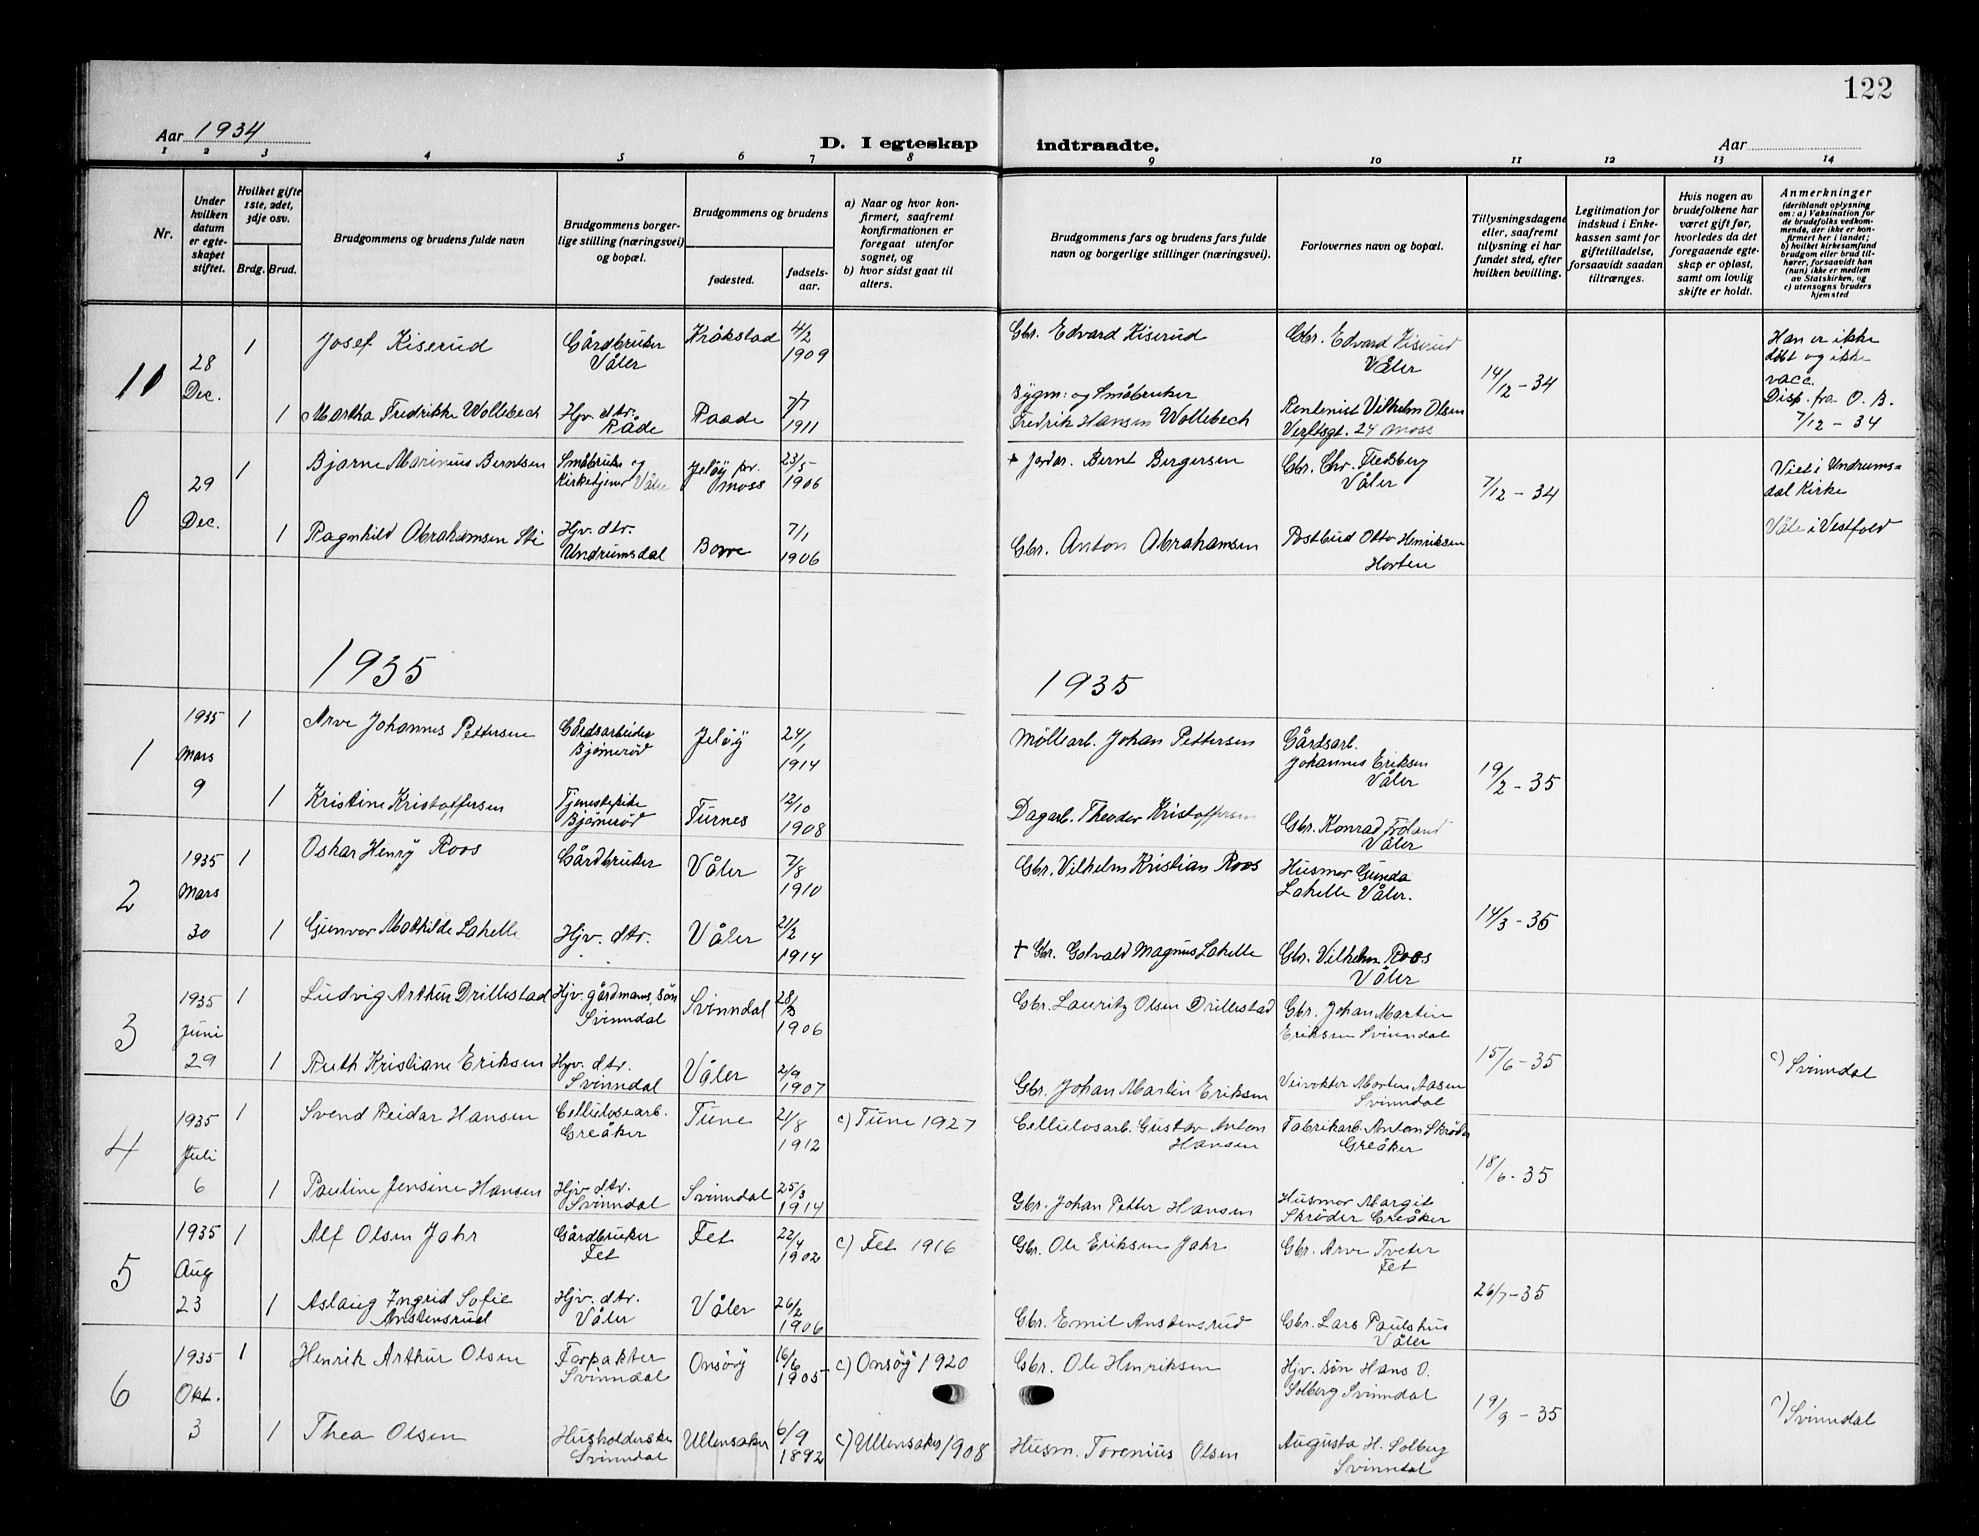 122
Aar 1934
D. I egteskap indtraadte.
Aar
1 2 3 4 5 6 7 8 9 10 11 12 13 14
Nr.
Under hvilken datum er egteskapet stiftet.
Hvilket gifte 1ste, 2det, 3dje osv.
Brdg. Brud.
Brudgommens og brudens fulde navn
Brudgommens borgerlige stilling (næringsvei) og bopæl.
Brudgommens og brudens
fødested.
fødselsaar.
a) Naar og hvor konfirmert, saafremt konfirmationen er foregaat utenfor sognet, og
b) hvor sidst gaat til alters.
Brudgommens fars og brudens fars fulde navn og borgerlige stillinger (næringsvei).
Forlovernes navn og bopæl.
Tillysningsdagene eller, saafremt tillysning ei har fundet sted, efter hvilken bevilling.
Legitimation for indskud i Enkekassen samt for giftetilladelse, forsaavidt saadan tiltrænges.
Hvis nogen av brudefolkene har været gift før, hvorledes da det foregaaende egteskap er opløst, samt om lovlig skifte er holdt.
Anmerkninger
(deriblandt oplysning om: a) Vaksination for de brudefolks vedkommende, der ikke er konfirmert her i landet; b) hvilket kirkesamfund brudgom eller brud tilhører, forsaavidt han (hun) ikke er medlem av Statskirken, og c) utensogns bruders hjemsted
28 Dec. 1 Josef Kiserud Gårdbruker Våler Kråkstad 4/2 1909 Gbr. Edvard Kiserud Gbr. Edvard Kiserud Våler 14/12-34 Han er ikke døbt og ikke vacc. Disp. fra O. B. 7/12-34
1 Martha Fredrikke Wollebech Hjv. dtr. Råde Raade 7/7 1911 Bygm: og Småbruker Fredrik Hansen Wollebech Rentenist Vilhelm Olsen Verftsgt. 24 Moss
0 29 Dec. 1 Bjarne Marinius Berntsen Småbruker og Kirketjener Våler Jeløy pr. Moss 23/5 1906 + Jordar. Bernt Bergersen Gbr. Chr. Fledsberg Våler 7/12-34 Viet i Undrumsdal Kirke
1 Ragnhild Abrahamsen Sti Hjv. dtr. Undrumsdal Borre 7/1 1906 Gbr. Anton Abrahamsen Postbud Otto Henriksen Horten Våle i Vestfold
1935
1935
1 1935 Mars 9 1 Arve Johannes Pettersen Gårdsarbeider Bjørnerød Jeløy 24/1 1914 Møllearb. Johan Pettersen Gårdsarb. Johannes Eriksen Våler 19/2-35
1 Kristine Kristoffersen Tjenestepike Bjørnerød Furnes 12/10 1908 Dagarb. Theodor Kristoffersen Gbr. Konrad Frøland Våler
2 1935 Mars 30 1 Oskar Henry Roos Gårdbruker Våler 7/8 1910 Gbr. Vilhelm Kristian Roos Husmor Gunda Lakelle Våler. 14/3-35
1 Gunvor Mathilde Lakelle Hjv. dtr. Våler 21/2 1914 + Gbr. Gotvald Magnus Lakelle Gbr. Vilhelm Roos Våler
3 1935 Juni 29 1 Ludvig Arthur Drillestad Hjv. gårdmans. søn Svinndal Svinndal 28/3 1906 Gbr. Lauritz Olsen Drillestad Gbr. Johan Martin Eriksen Svinndal 15/6-35 c) Svinndal
1 Ruth Kristiane Eriksen Hjv. dtr. Svinndal Våler 2/9 1907 Gbr. Johan Martin Eriksen Veivokter Morten Aasen Svinndal
4 1935 Juli 6 1 Svend Reidar Hansen Cellulosearb. Greåker Tune 21/8 1912 c) Tune 1927 Cellulosarb. Gustav Anton Hansen Fabrikarb. Anton Skrøder Greåker 18/6-35
1 Pauline Jensine Hansen Hjv. dtr. Svinndal Svinndal 25/3 1914 Gbr. Johan Petter Hansen Husmor Margit Skrøder Greåker
5 1935 Aug 23 1 Alf Olsen Jahr Gårdbruker Fet Fet 22/4 1902 c) Fet 1916 Gbr. Ole Eriksen Jahr Gbr. Arve Tveter Fet 26/7-35
1 Aslaug Ingrid Sofie Anstensrud Hjv. dtr. Våler Våler 26/2 1906 Gbr. Emil Anstensrud Gbr. Lars Paulshus Våler
6 1935 Okt. 3 1 Henrik Arthur Olsen Forpakter Svinndal Onsøy 16/6 1905 c) Onsøy 1920 Gbr. Ole Henriksen Hjv. søn Hans O. Solberg Svinndal 19/9-35 c) Svinndal
1 Thea Olsen Husholderske Svinndal Ullensaker 6/9 1892 c) Ullensaker 1908 Husm. Torenius Olsen Augusta H. Solberg Svinndal